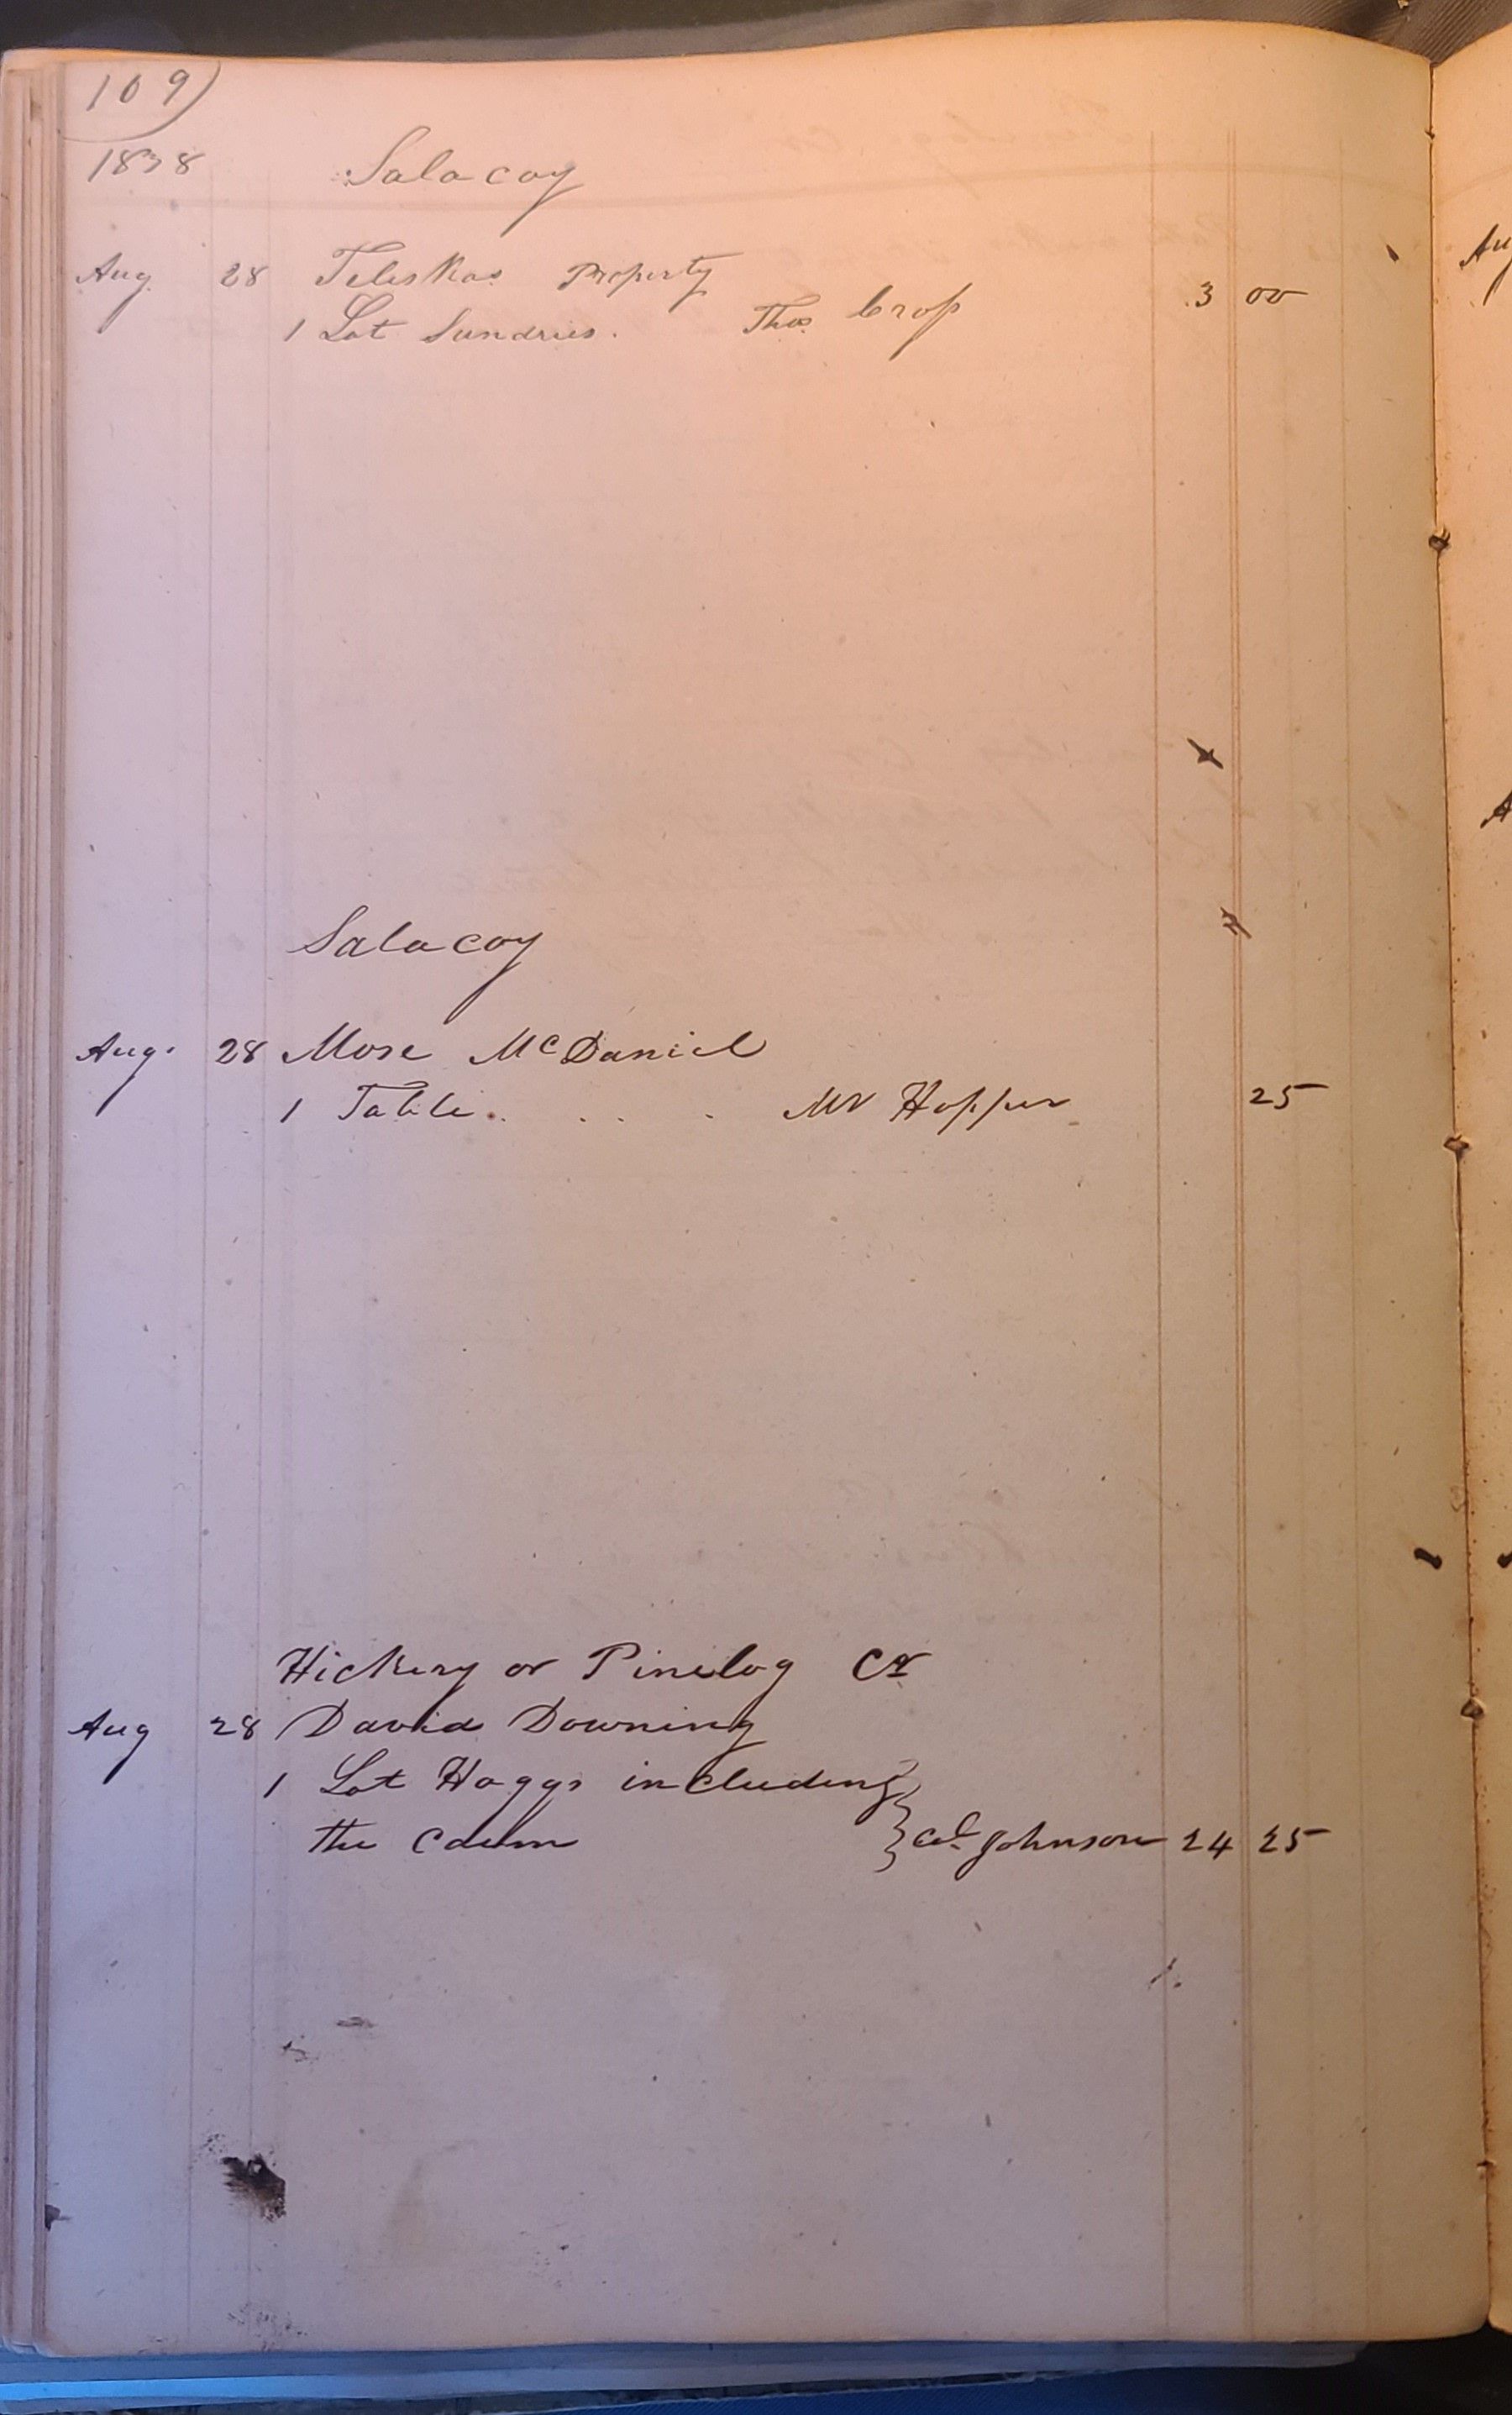 109
1838 Salacoy
Aug. 28 Teleskas Property
1 Lot Sundries. Thos. Crop 3 00
Salacoy
Aug. 28 Mose McDaniel
1 Table . . . . Mr Hopper 25
Hickery or Pinelog Cr
Aug 28 David Downing
1 Lot Hoggs including
the Claim } Col. Johnson 24 25
Au
A